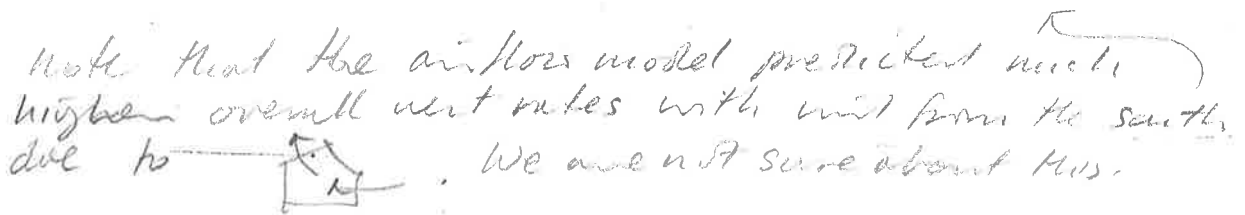 Note that the airflow model predicted much
higher overall vent rates with wind from the south
due to . We are not sure about this.